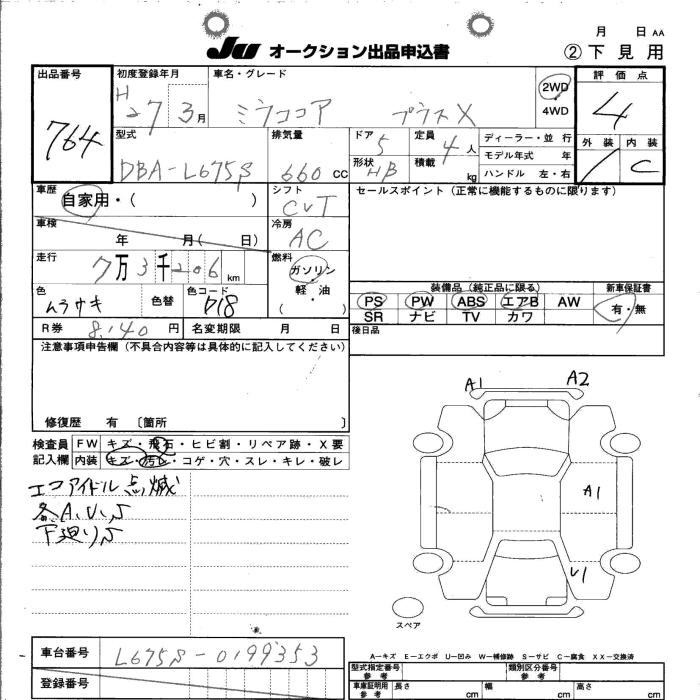 JU オークション出品申込書
月 日 AA
②下見用
出品番号 764
初度登録年月 H27 3月
車名・グレード ミラココア プラスX
2WD
4WD
評価点 4
外装 内装
/ C
型式 DBA-L675S
排気量 660 CC
ドア 5
形状 HB
定員 4人
積載 kg
ディーラー・並行
モデル年式 年
ハンドル 左・右
車歴 自家用・( )
シフト CVT
セールスポイント(正常に機能するものに限ります)
車検 年 月( 日)
冷房 AC
走行 7万3千206 km
燃料 ガソリン
軽・油
( )
色 ムラサキ
色替
色コード P18
装備品(純正品に限る)
新車保証書
PS PW ABS エアB AW
有・無
SR ナビ TV カワ
R券 8,140 円
名変期限 月 日
後日品
注意事項申告欄(不具合内容等は具体的に記入してください)
修復歴 有 〔箇所 〕
検査員記入欄
FW キズ・飛石・ヒビ割・リペア跡・X要
内装 キズ・汚レ・コゲ・穴・スレ・キレ・破レ
エコアイドル点滅
各A、U、S
下廻りS
A1 A2
A1
U1
スペア
A-キズ E-エクボ U-凹み W-補修跡 S-サビ C-腐食 XX-交換済
車台番号 L675S-0199353
登録番号
型式指定番号 参考
類別区分番号 参考
車庫証明用 参考
長さ cm
幅 cm
高さ cm